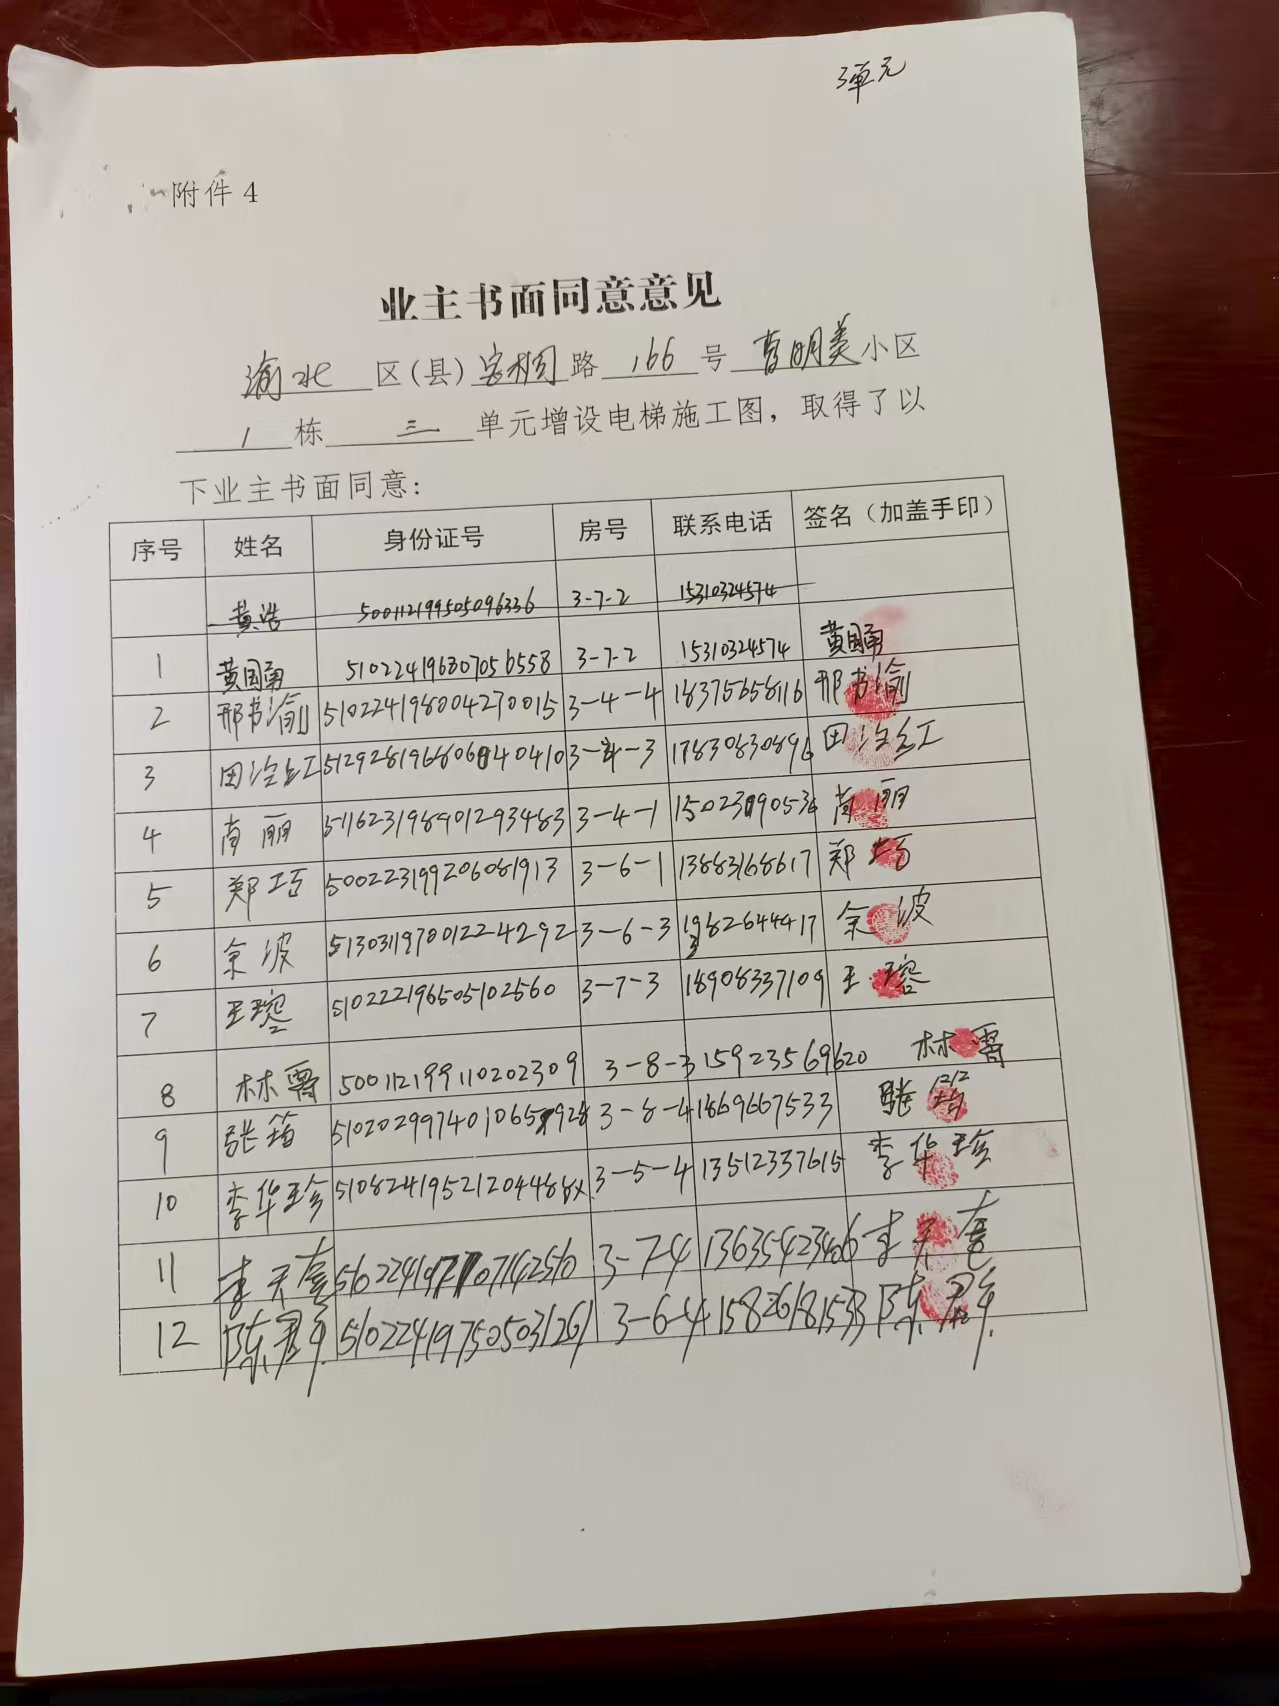 3单元
附件 4
业主书面同意意见
渝北 区(县) 宝桐 路 166 号 小区
1 栋 三 单元增设电梯施工图，取得了以
下业主书面同意：
序号 姓名 身份证号 房号 联系电话 签名（加盖手印）
黄浩 500112199505096336 3-7-2 15310324574
1 黄国勇 510224196307056558 3-7-2 15310324574 黄国勇
2 邢书渝 510224198004270015 3-4-4 18375658116 邢书渝
3 田治红 3-4-3 17830830896 田治红
4 肖丽 511623198901293483 3-4-1 肖丽
5 郑巧 500223199206081913 3-6-1 13883168617 郑巧
6 余波 513031197001224292 3-6-3 余波
7 王瑢 510222196505102560 3-7-3 18908337109 王瑢
8 林霄 500112199110202309 3-8-3 15923569620 林霄
9 张筠 3-8-4 1869667533 张筠
10 李华珍 3-5-4 13512337615 李华珍
11 3-7-4 13635423406
12 陈君 510224197505031261 3-6-4 15826181533 陈君